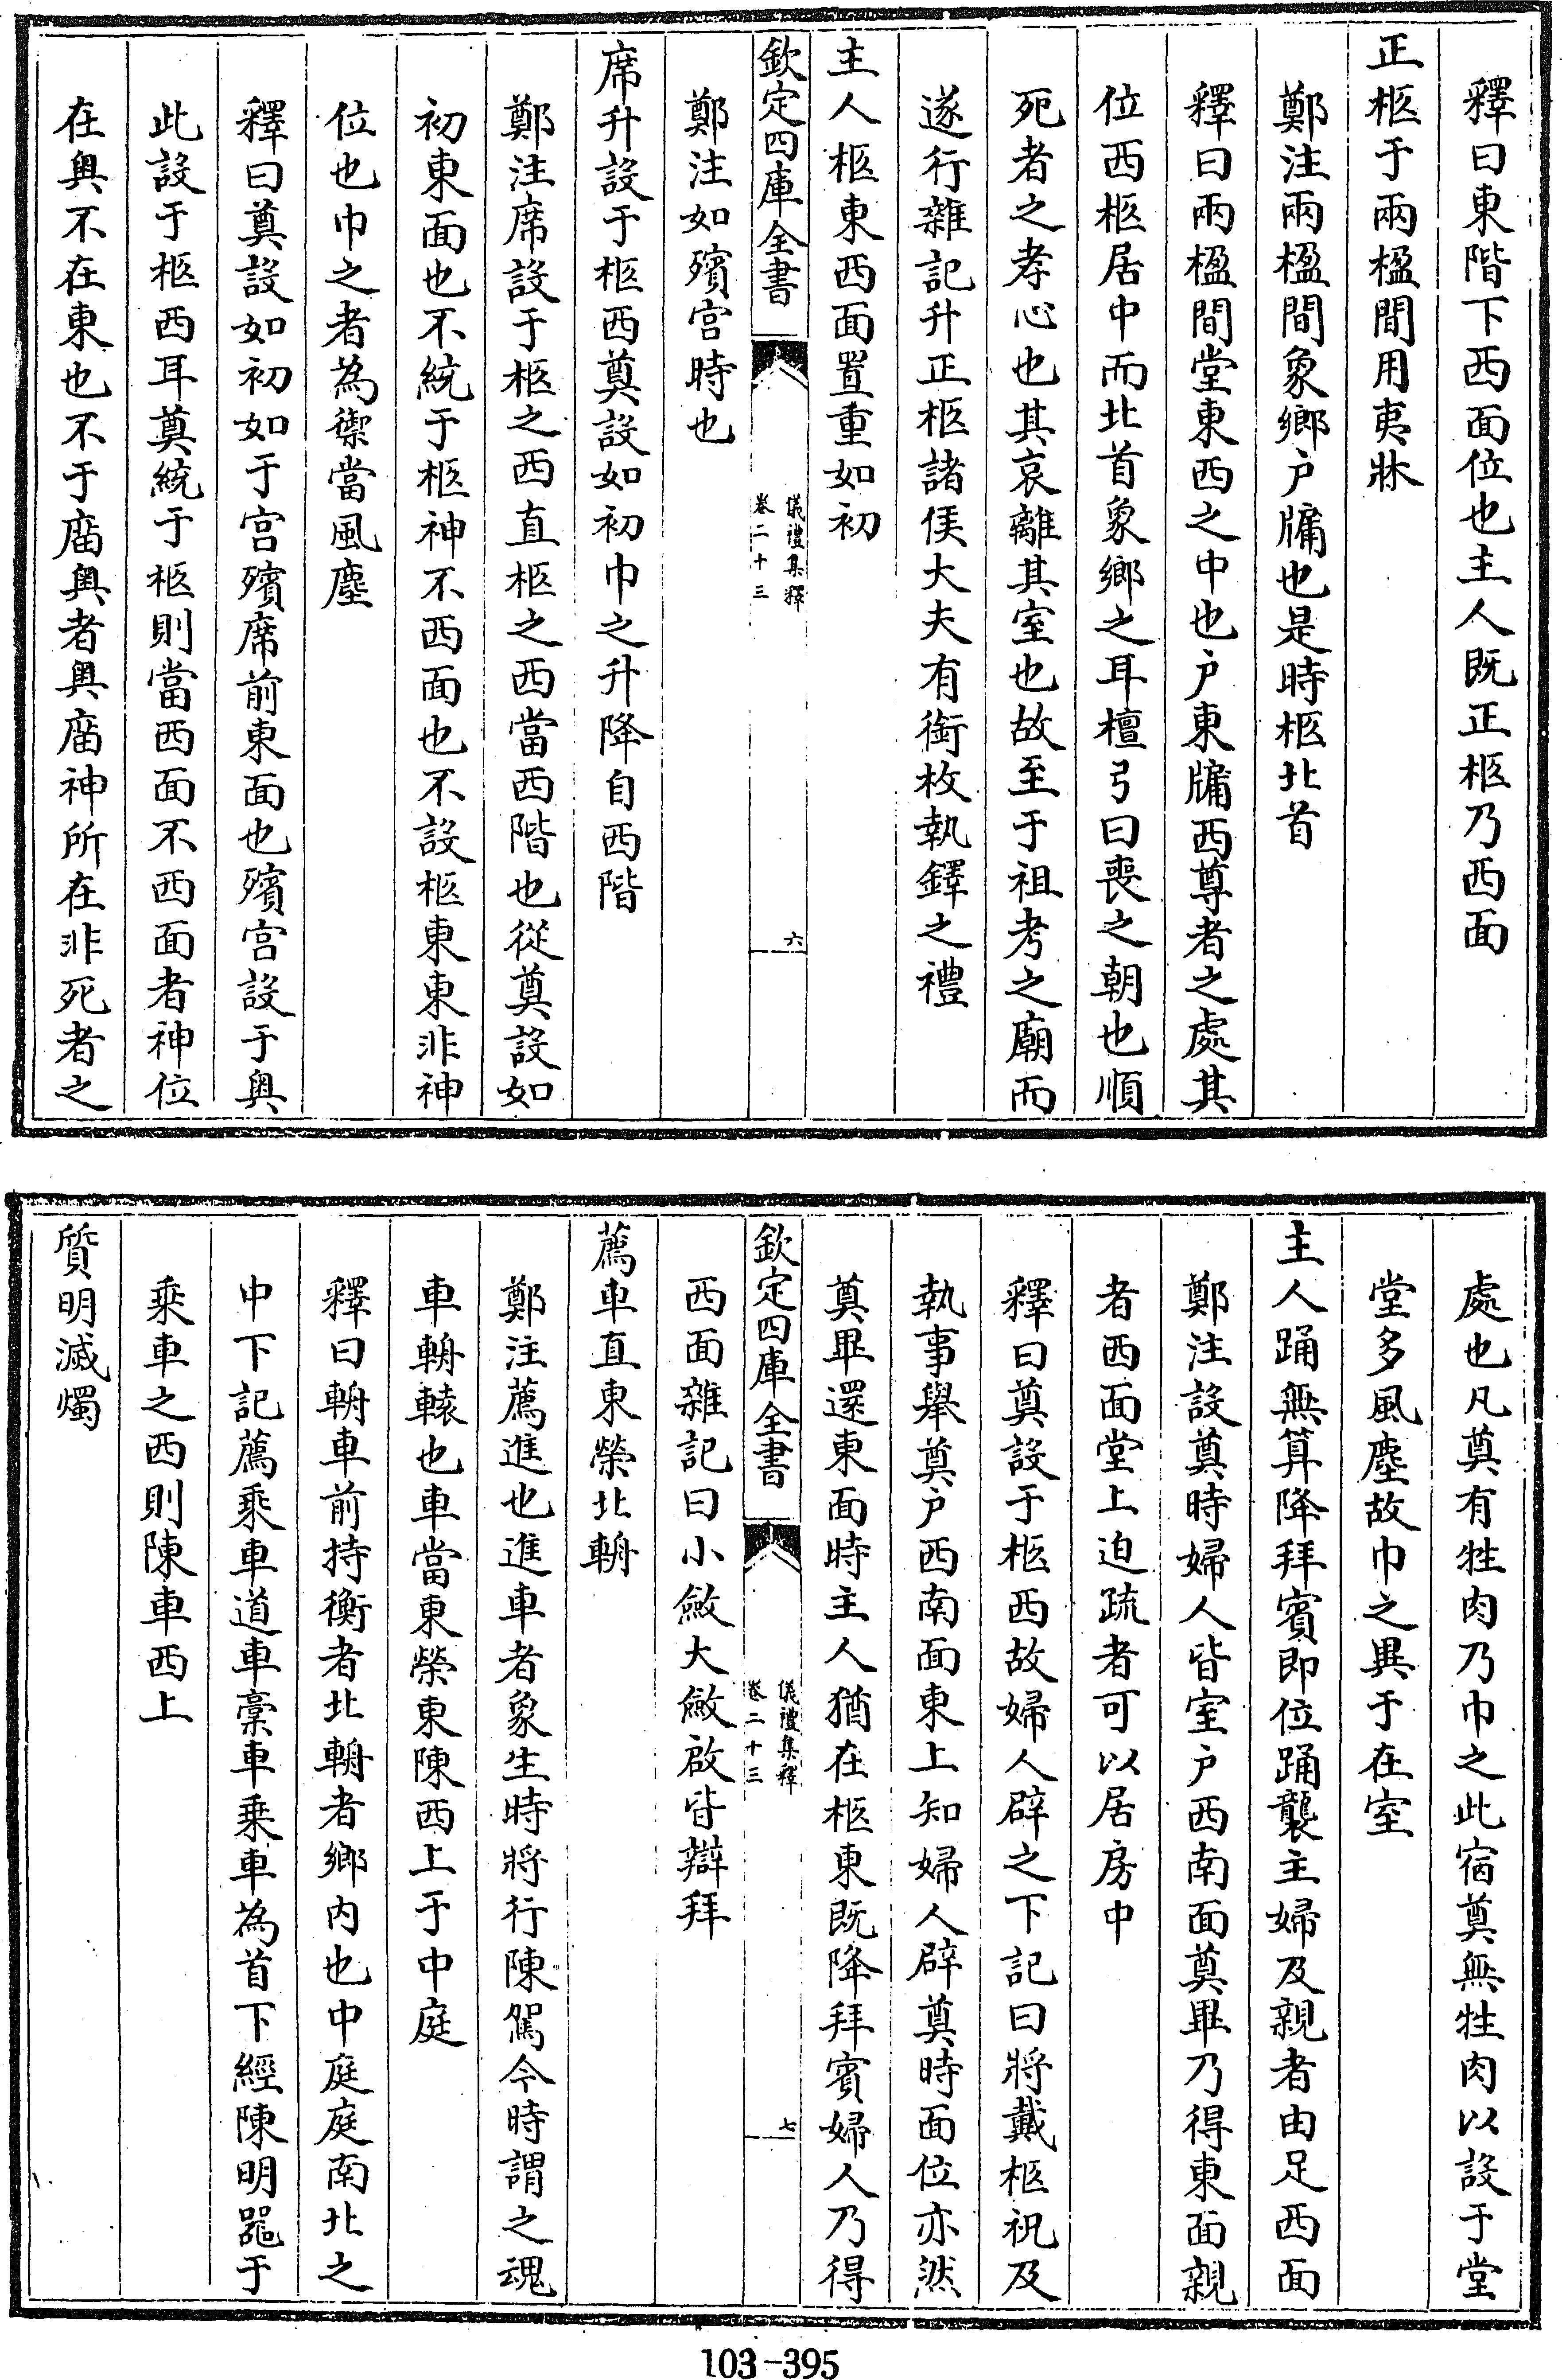 釋曰東階下西面位也主人既正柩乃西面
正柩于兩楹間用夷牀
鄭注兩楹間象鄉户牖也是時柩北首
釋曰兩楹間堂東西之中也户東牖西尊者之處其
位西柩居中而北首象鄉之耳檀弓曰喪之朝也順
死者之孝心也其哀離其室也故至于祖考之廟而
遂行雜記升正柩諸侯大夫有銜枚執鐸之禮
主人柩東西面置重如初
欽定四庫全書
儀禮集釋
卷二十三
六
鄭注如殯宫時也
席升設于柩西奠設如初巾之升降自西階
鄭注席設于柩之西直柩之西當西階也從奠設如
初東面也不統于柩神不西面也不設柩東東非神
位也巾之者為禦當風塵
釋曰奠設如初如于宫殯席前東面也殯宫設于奥
此設于柩西耳奠統于柩則當西面不西面者神位
在奥不在東也不于庿奥者奥庿神所在非死者之
處也凡奠有牲肉乃巾之此宿奠無牲肉以設于堂
堂多風塵故巾之異于在室
主人踊無筭降拜賓即位踊襲主婦及親者由足西面
鄭注設奠時婦人皆室户西南面奠畢乃得東面親
者西面堂上迫疏者可以居房中
釋曰奠設于柩西故婦人辟之下記曰將戴柩祝及
執事舉奠户西南面東上知婦人辟奠時面位亦然
奠畢還東面時主人猶在柩東既降拜賓婦人乃得
欽定四庫全書
儀禮集釋
卷二十三
七
西面雜記曰小斂大斂啟皆辯拜
薦車直東榮北輈
鄭注薦進也進車者象生時將行陳駕今時謂之魂
車輈轅也車當東榮東陳西上于中庭
釋曰輈車前持衡者北輈者鄉内也中庭庭南北之
中下記薦乘車道車槀車乘車為首下經陳明器于
乘車之西則陳車西上
質明滅燭
103-395